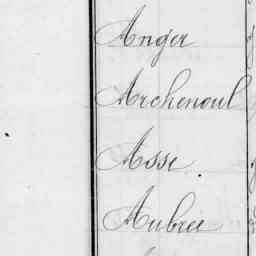 Anger
Archenoul
Asse
Aubrée